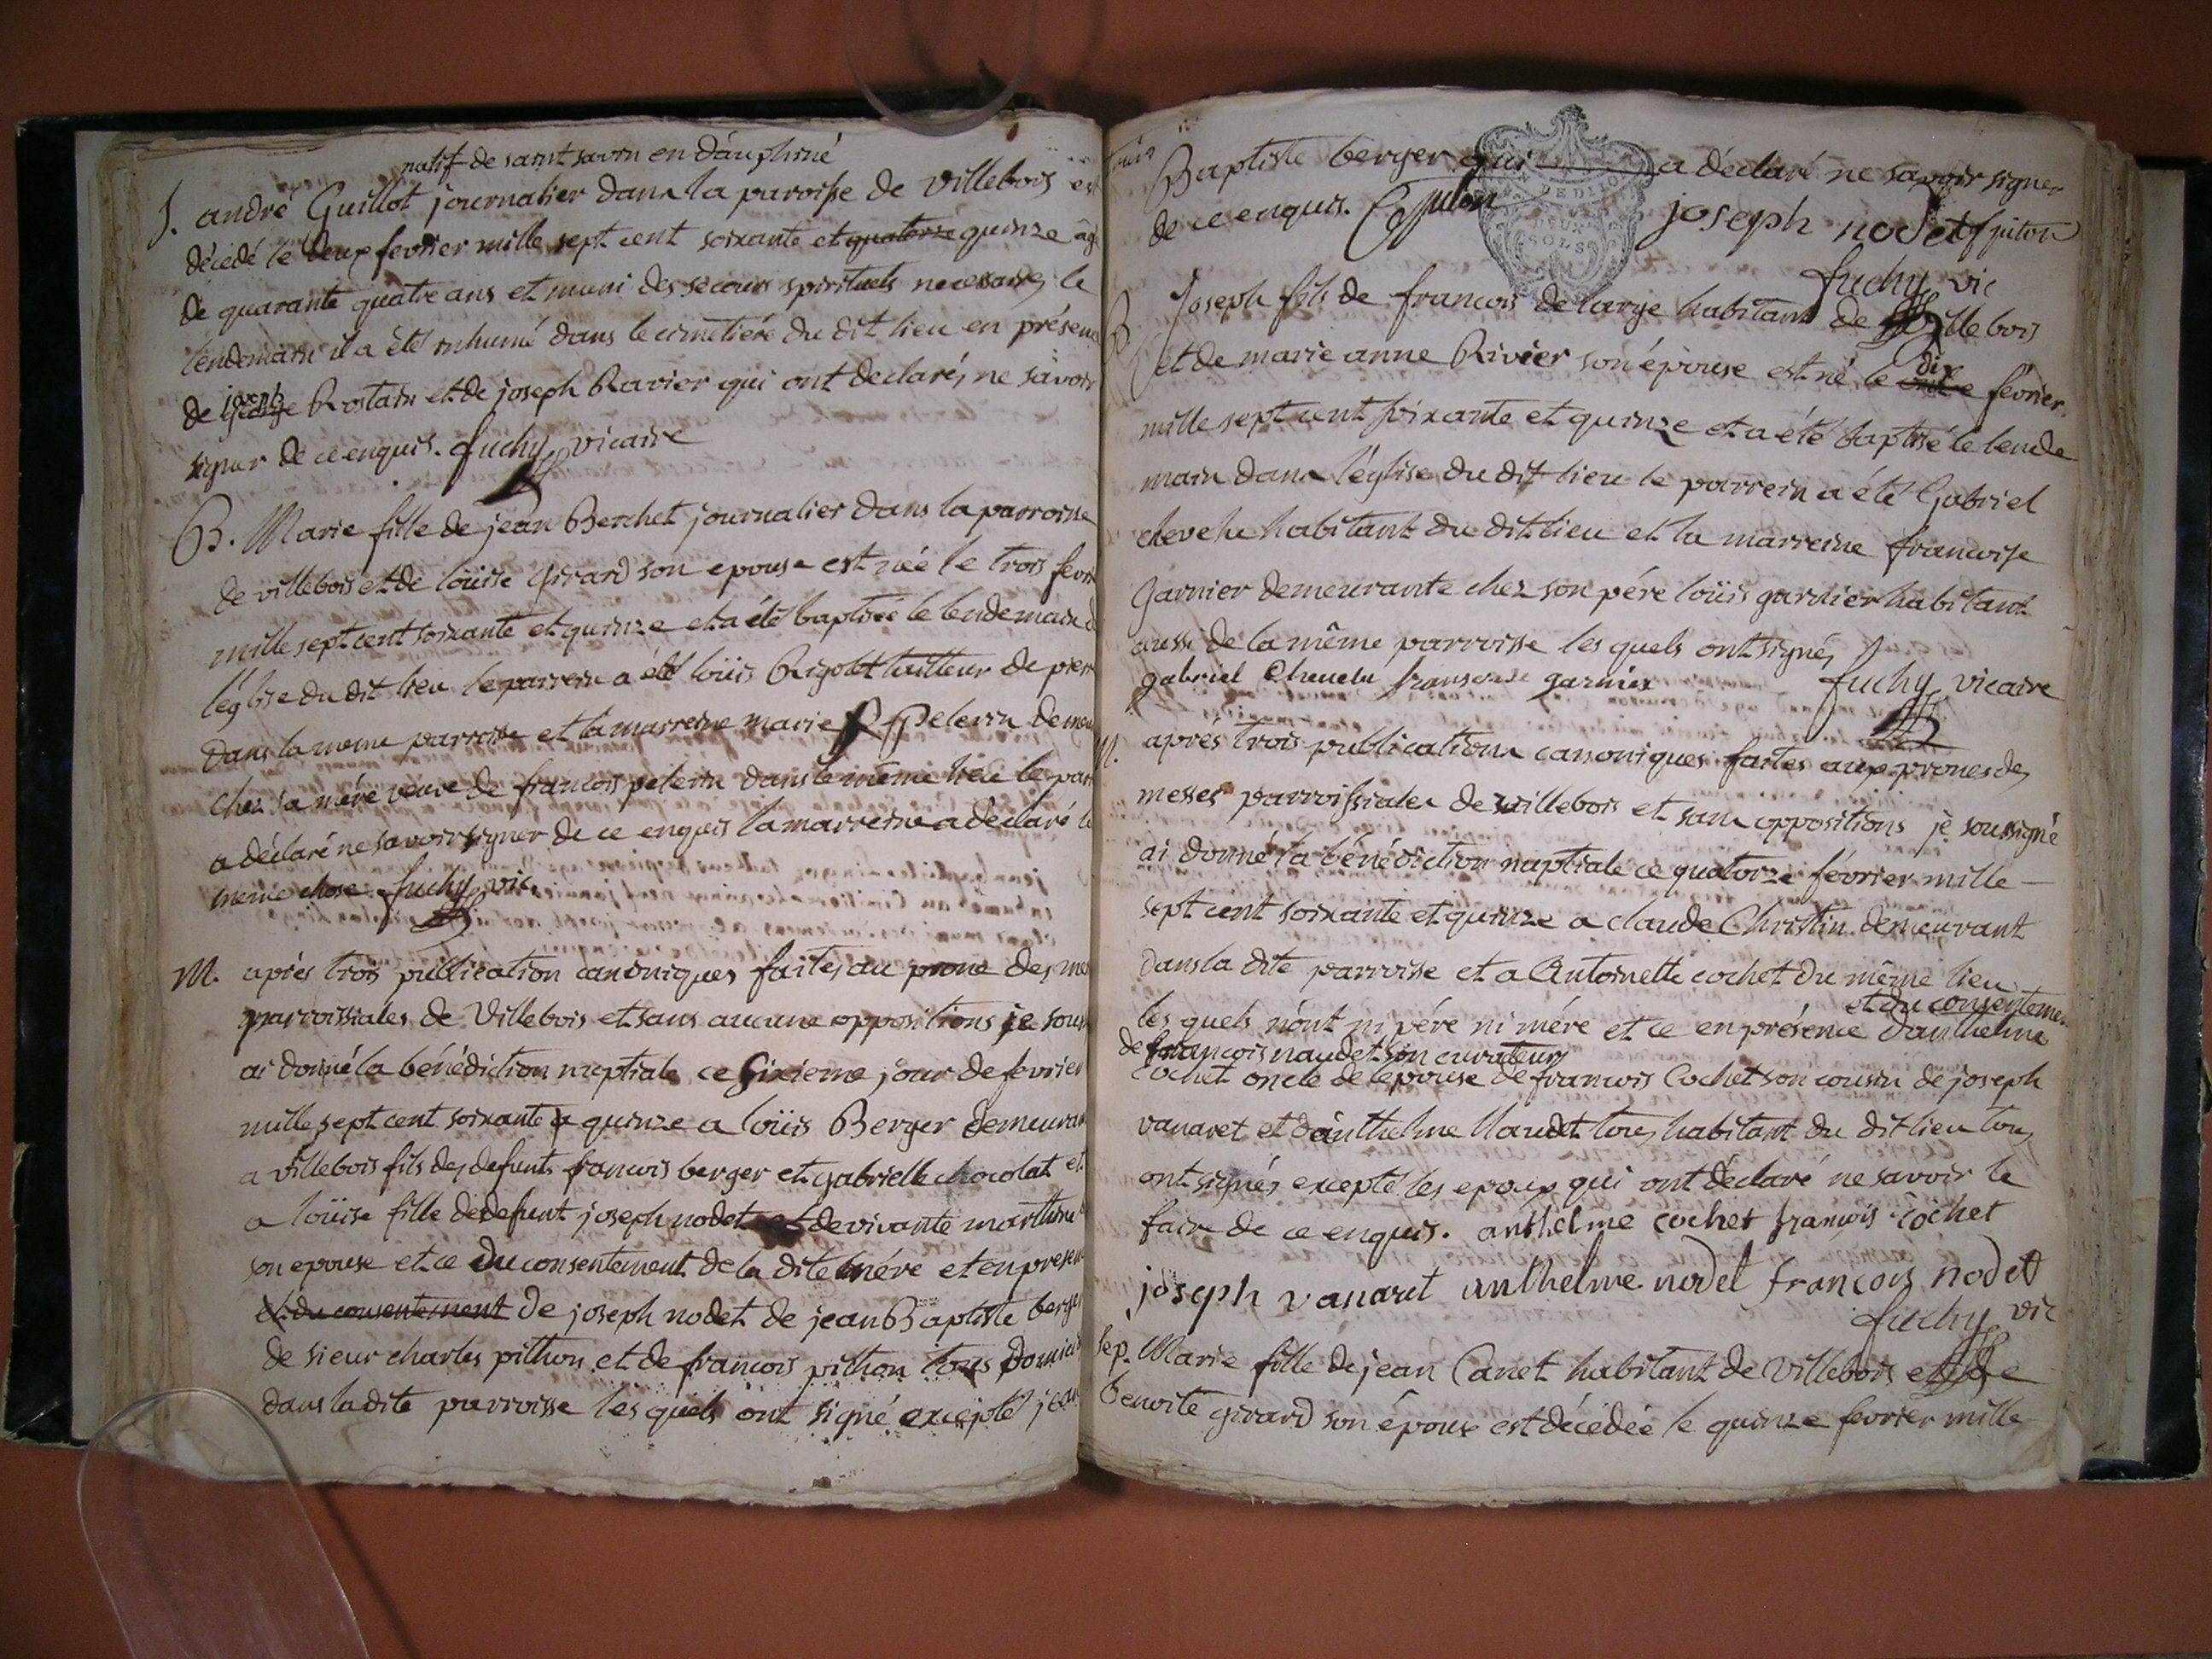 natif de saint savin en dauphiné
S. andré Guillot journalier dans la paroisse de Villebois est
décédé le deux fevrier mille sept cent soixante et quatorze quinze âgé
de quarante quatre ans et muni des secours spirituels necessaires le
lendemain il a été inhumé dans le cimetiére du dit lieu en présence
joseph
de Rostain et de joseph Ravier qui ont declarés ne savoir
signer de ce enquis. fuchy vicaire
B. Marie fille de jean Berchet journalier dans la parroisse
de villebois et de loüise Girard son epouse est née le trois fevri
mille sept cent soixante et quinze et a été baptisée le lendemain d
l'église du dit lieu le parrein a été loüis Rigolet tailleur de pier
dans la meme parroisse et la marreine marie pelerin demeu
chez sa mére veuve de francois pelerin dans le même lieu le par
a déclaré ne savoir signer de ce enquis la marreine a déclaré le
meme chose. fuchy vic.
M. aprés trois publication canoniques faites au prone des mes
parroissiales de Villebois et sans aucune oppositions je sous
ai donné la bénédiction nuptiale ce sixieme jour de fevrier
mille sept cent soixante quinze a loüis Berger demeurant
a villebois fils des defunts francois berger et gabrielle chocolat et
a loüise fille de defunt joseph nodet et de vivante marthine
son epouse et ce du consentement de la dite mére et en presen
et du consentement de joseph nodet de jean Baptiste berger
de sieur charles pithon et de francois pithon tous domicil
dans la dite parroisse les quels ont signé excepté jean
Baptiste berger qui a déclaré ne savoir signer
de ce enquis. joseph nodet f piton
fuchy vic
B Joseph fils de francois delarge habitant de Villebois
dix
et de marie anne Rivier son épouse est né le fevrier
mille sept cent soixante et quinze et a été baptisé le lende
main dans l'église du dit lieu le parrein a été Gabriel
chevelu habitant du dit lieu et la marreine francoise
Garnier demeurante chez son pére loüis garnier habitant
aussi de la même parroisse les quels ont signés
gabriel Chevelu fransoise garnier fuchy vicaire
M. aprés trois publications canoniques faites aux prones des
messes parroissiales de villebois et sans oppositions je soussigné
ai donné la bénédiction nuptiale ce quatorze février mille
sept cent soixante et quinze a claude Christin demeurant
dans la dite parroisse et a Antoinette cochet du même lieu
et du consentement
les quels n'ont ni pére ni mére et ce en présence d'anthelme
de francois naudet son curateur
Cochet oncle de l'epouse de francois Cochet son cousin de joseph
vanaret et d'anthelme Naudet tous habitant du dit lieu tous
ont signés excepté les epoux qui ont déclaré ne savoir le
faire de ce enquis. anthelme cochet françois cochet
joseph vanaret anthelme nodet francois nodet
fuchy vic
Sep. Marie fille de jean Canet habitant de Villebois et de
benoite girard son épouse est décédée le quinze fevrier mille